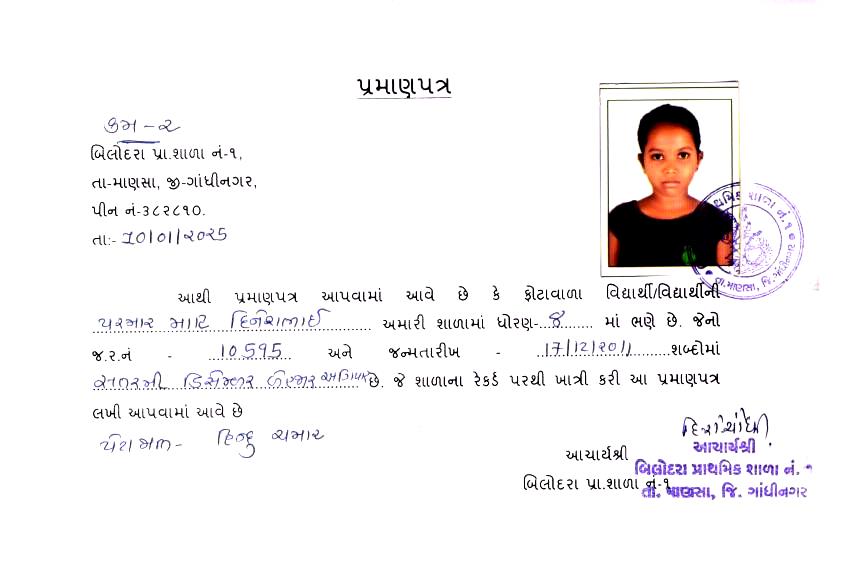 પ્રમાણપત્ર
ક્રમ - ૨
બિલોદરા પ્રા.શાળા નં-૧,
તા-માણસા, જી-ગાંધીનગર,
પીન નં-૩૮૨૮૧૦.
તા:- 10/01/2025
આથી પ્રમાણપત્ર આપવામાં આવે છે કે ફોટાવાળા વિદ્યાર્થી/વિદ્યાર્થીની
પરમાર માહી દિનેશભાઈ અમારી શાળામાં ધોરણ-૪ માં ભણે છે. જેનો
જ.ર.નં - 10595 અને જન્મતારીખ - 17/12/2011 શબ્દોમાં
સત્તરમી ડિસેમ્બર બે હજાર અગિયાર છે. જે શાળાના રેકર્ડ પરથી ખાત્રી કરી આ પ્રમાણપત્ર
લખી આપવામાં આવે છે
પેટા જાતિ - હિન્દુ ચમાર
આચાર્યશ્રી
બિલોદરા પ્રા.શાળા નં-૧
આચાર્યશ્રી
બિલોદરા પ્રાથમિક શાળા નં. ૧
તા. માણસા, જિ. ગાંધીનગર